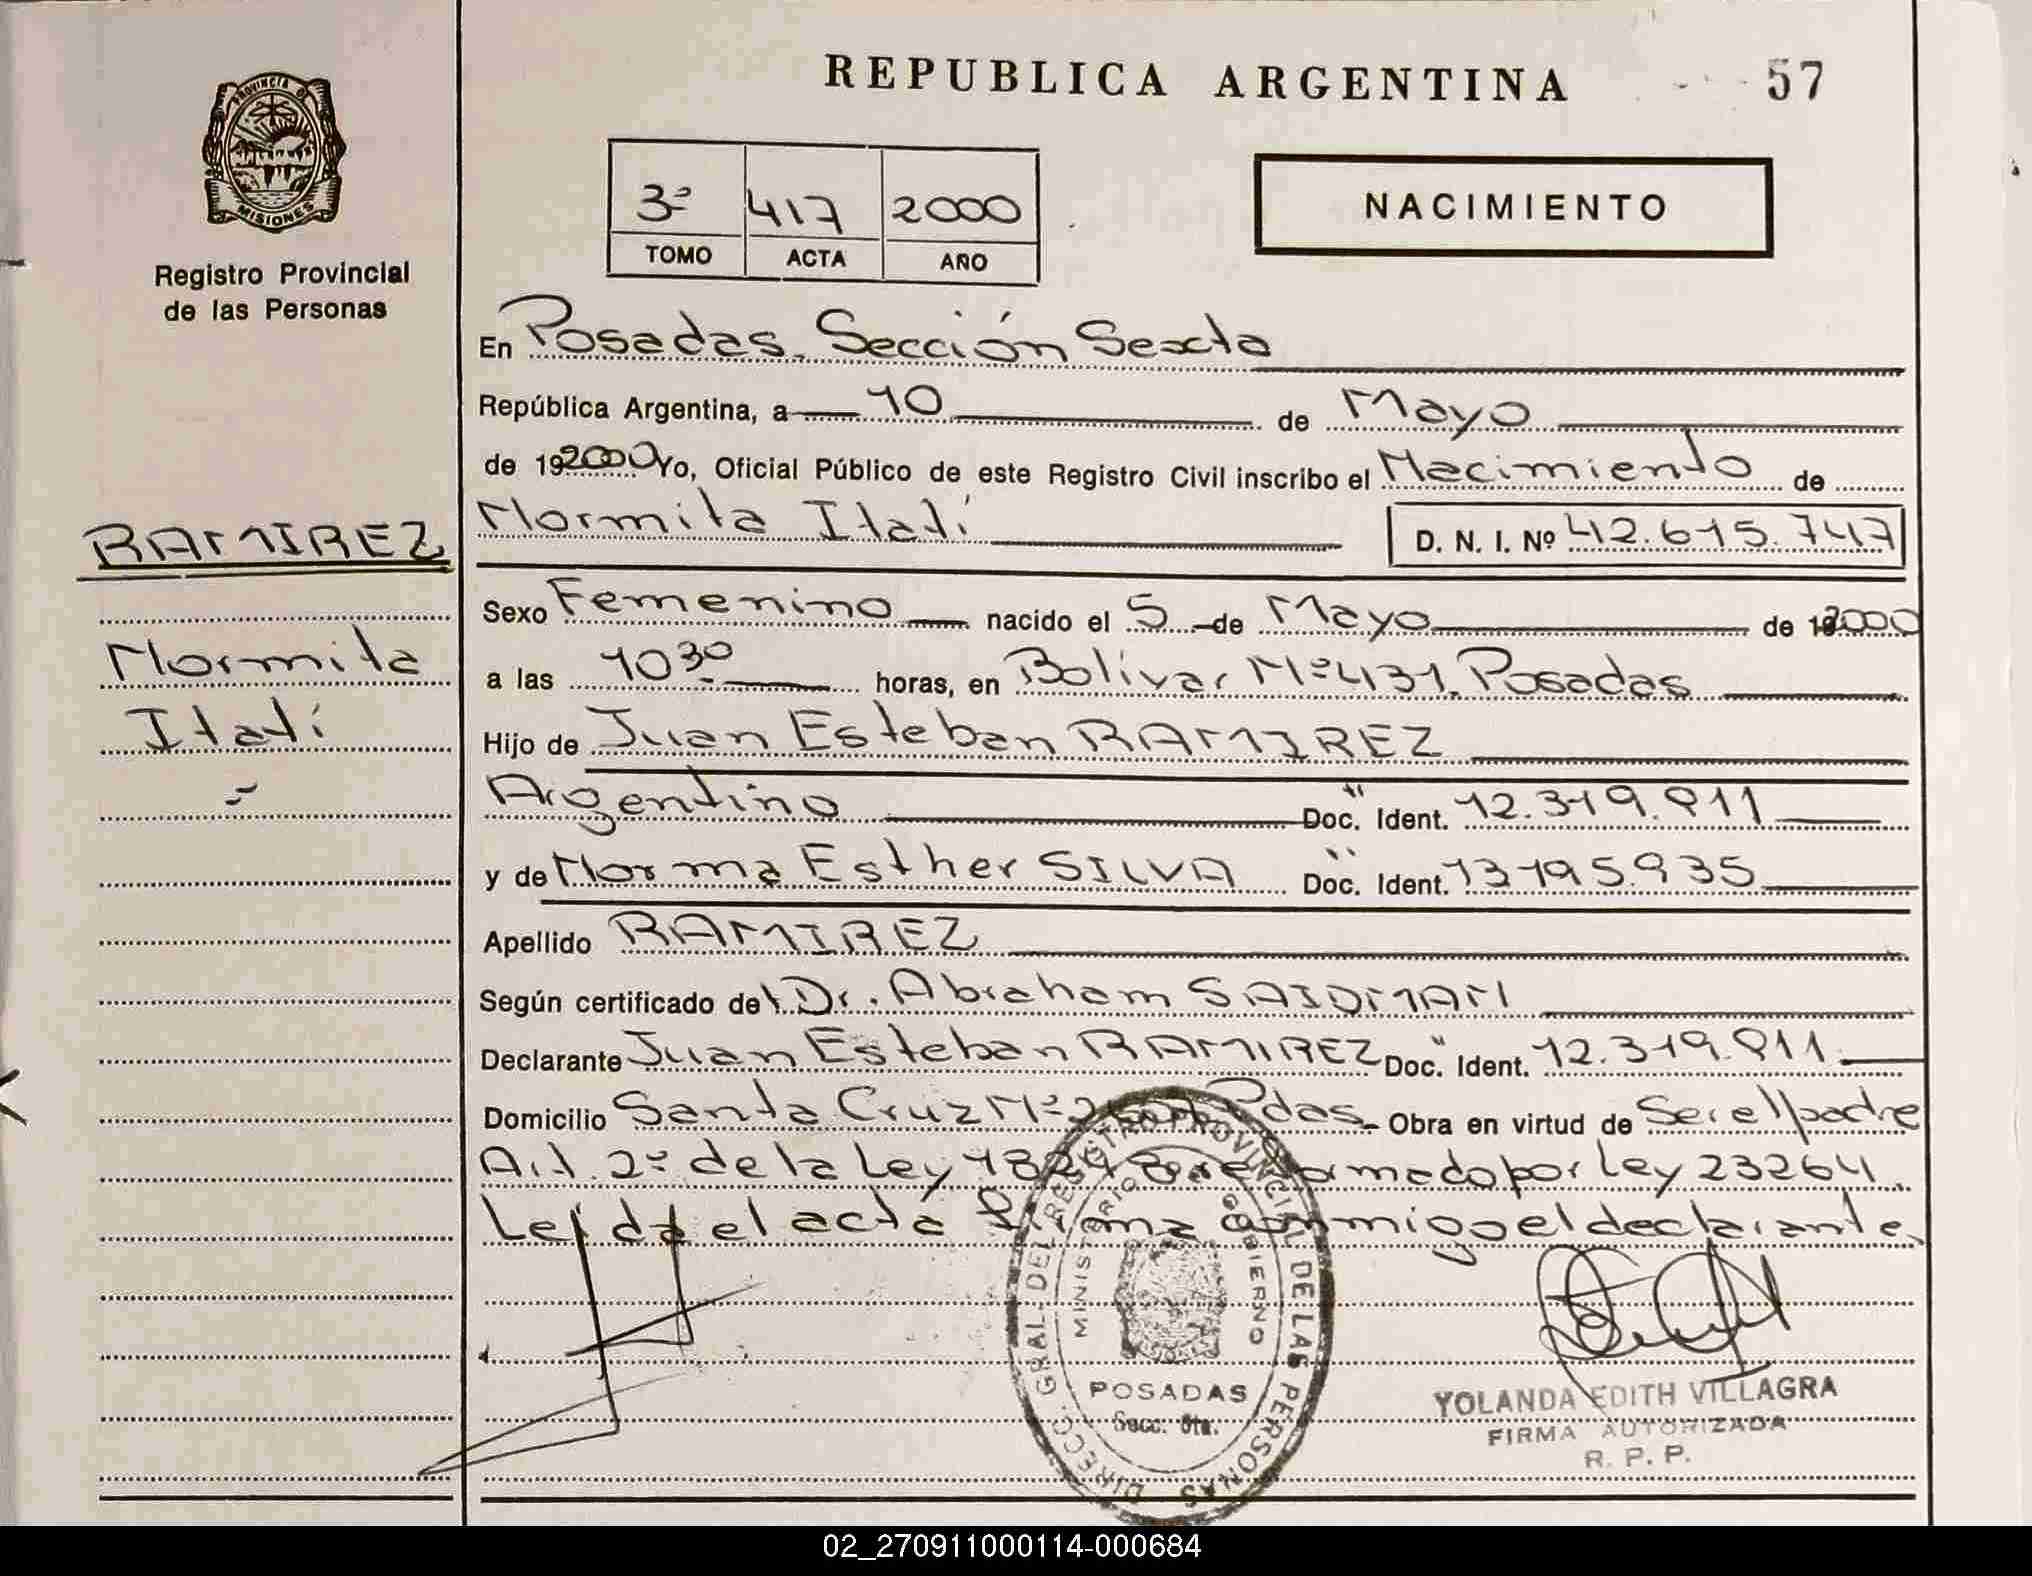 REPUBLICA ARGENTINA
57
PROVINCIA DE
MISIONES
Registro Provincial
de las Personas
3º 417 2000
TOMO ACTA AÑO
NACIMIENTO
En Posadas, Sección Sexta
República Argentina, a 10 de Mayo
de 192000 Yo, Oficial Público de este Registro Civil inscribo el Nacimiento de
Normita Itatí D. N. I. Nº 42.615.747
RAMIREZ
Normita
Itatí
Sexo Femenino nacido el 5 de Mayo de 2000
a las 10 30 horas, en Bolívar Nº 431. Posadas
Hijo de Juan Esteban RAMIREZ
Argentino Doc. Ident. 12.319.911
y de Norma Esther SILVA Doc. Ident. 13195.935
Apellido RAMIREZ
Según certificado del Dr. Abraham SAIDMAN
Declarante Juan Esteban RAMIREZ Doc. Ident. 12.319.911
Domicilio Santa Cruz Nº Pdas. Obra en virtud de Ser el padre
Art. 2º de la Ley reformado por Ley 23264
Leída el acta firma conmigo el declarante
DIRECC. GRAL. DEL REGISTRO PROVINCIAL DE LAS PERSONAS
MINISTERIO GOBIERNO
POSADAS
Secc. 6ta.
YOLANDA EDITH VILLAGRA
FIRMA AUTORIZADA
R. P. P.
02_270911000114-000684